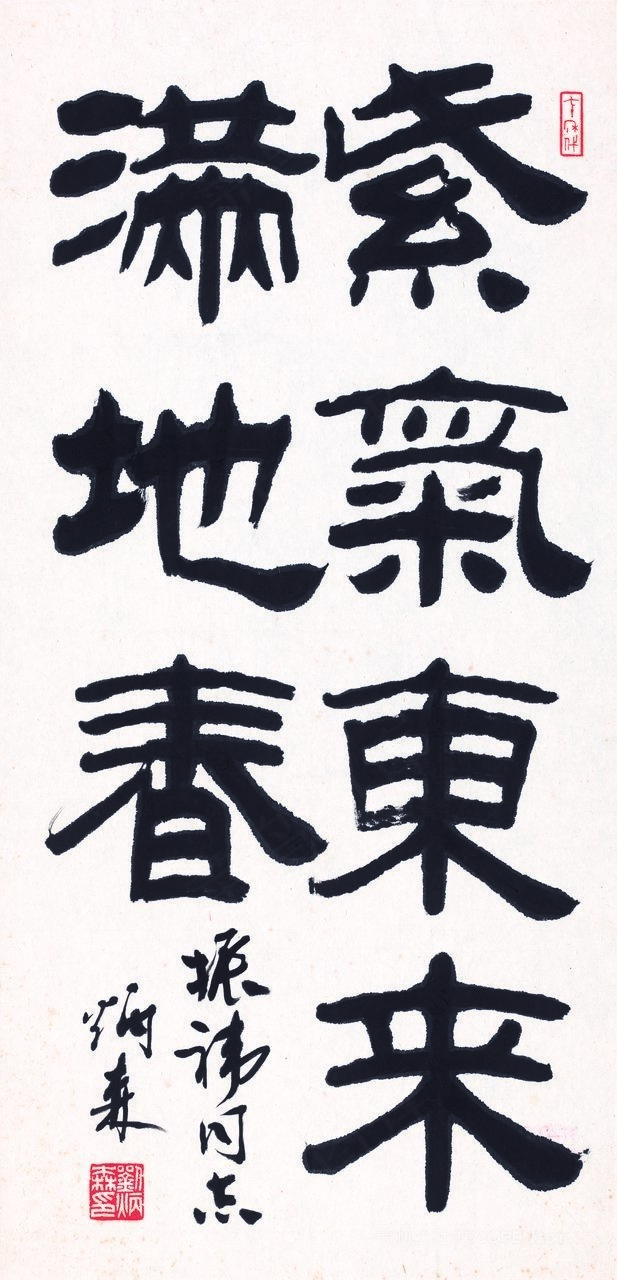 紫氣東来
满地春
振祎同志
炳森
劉炳森印